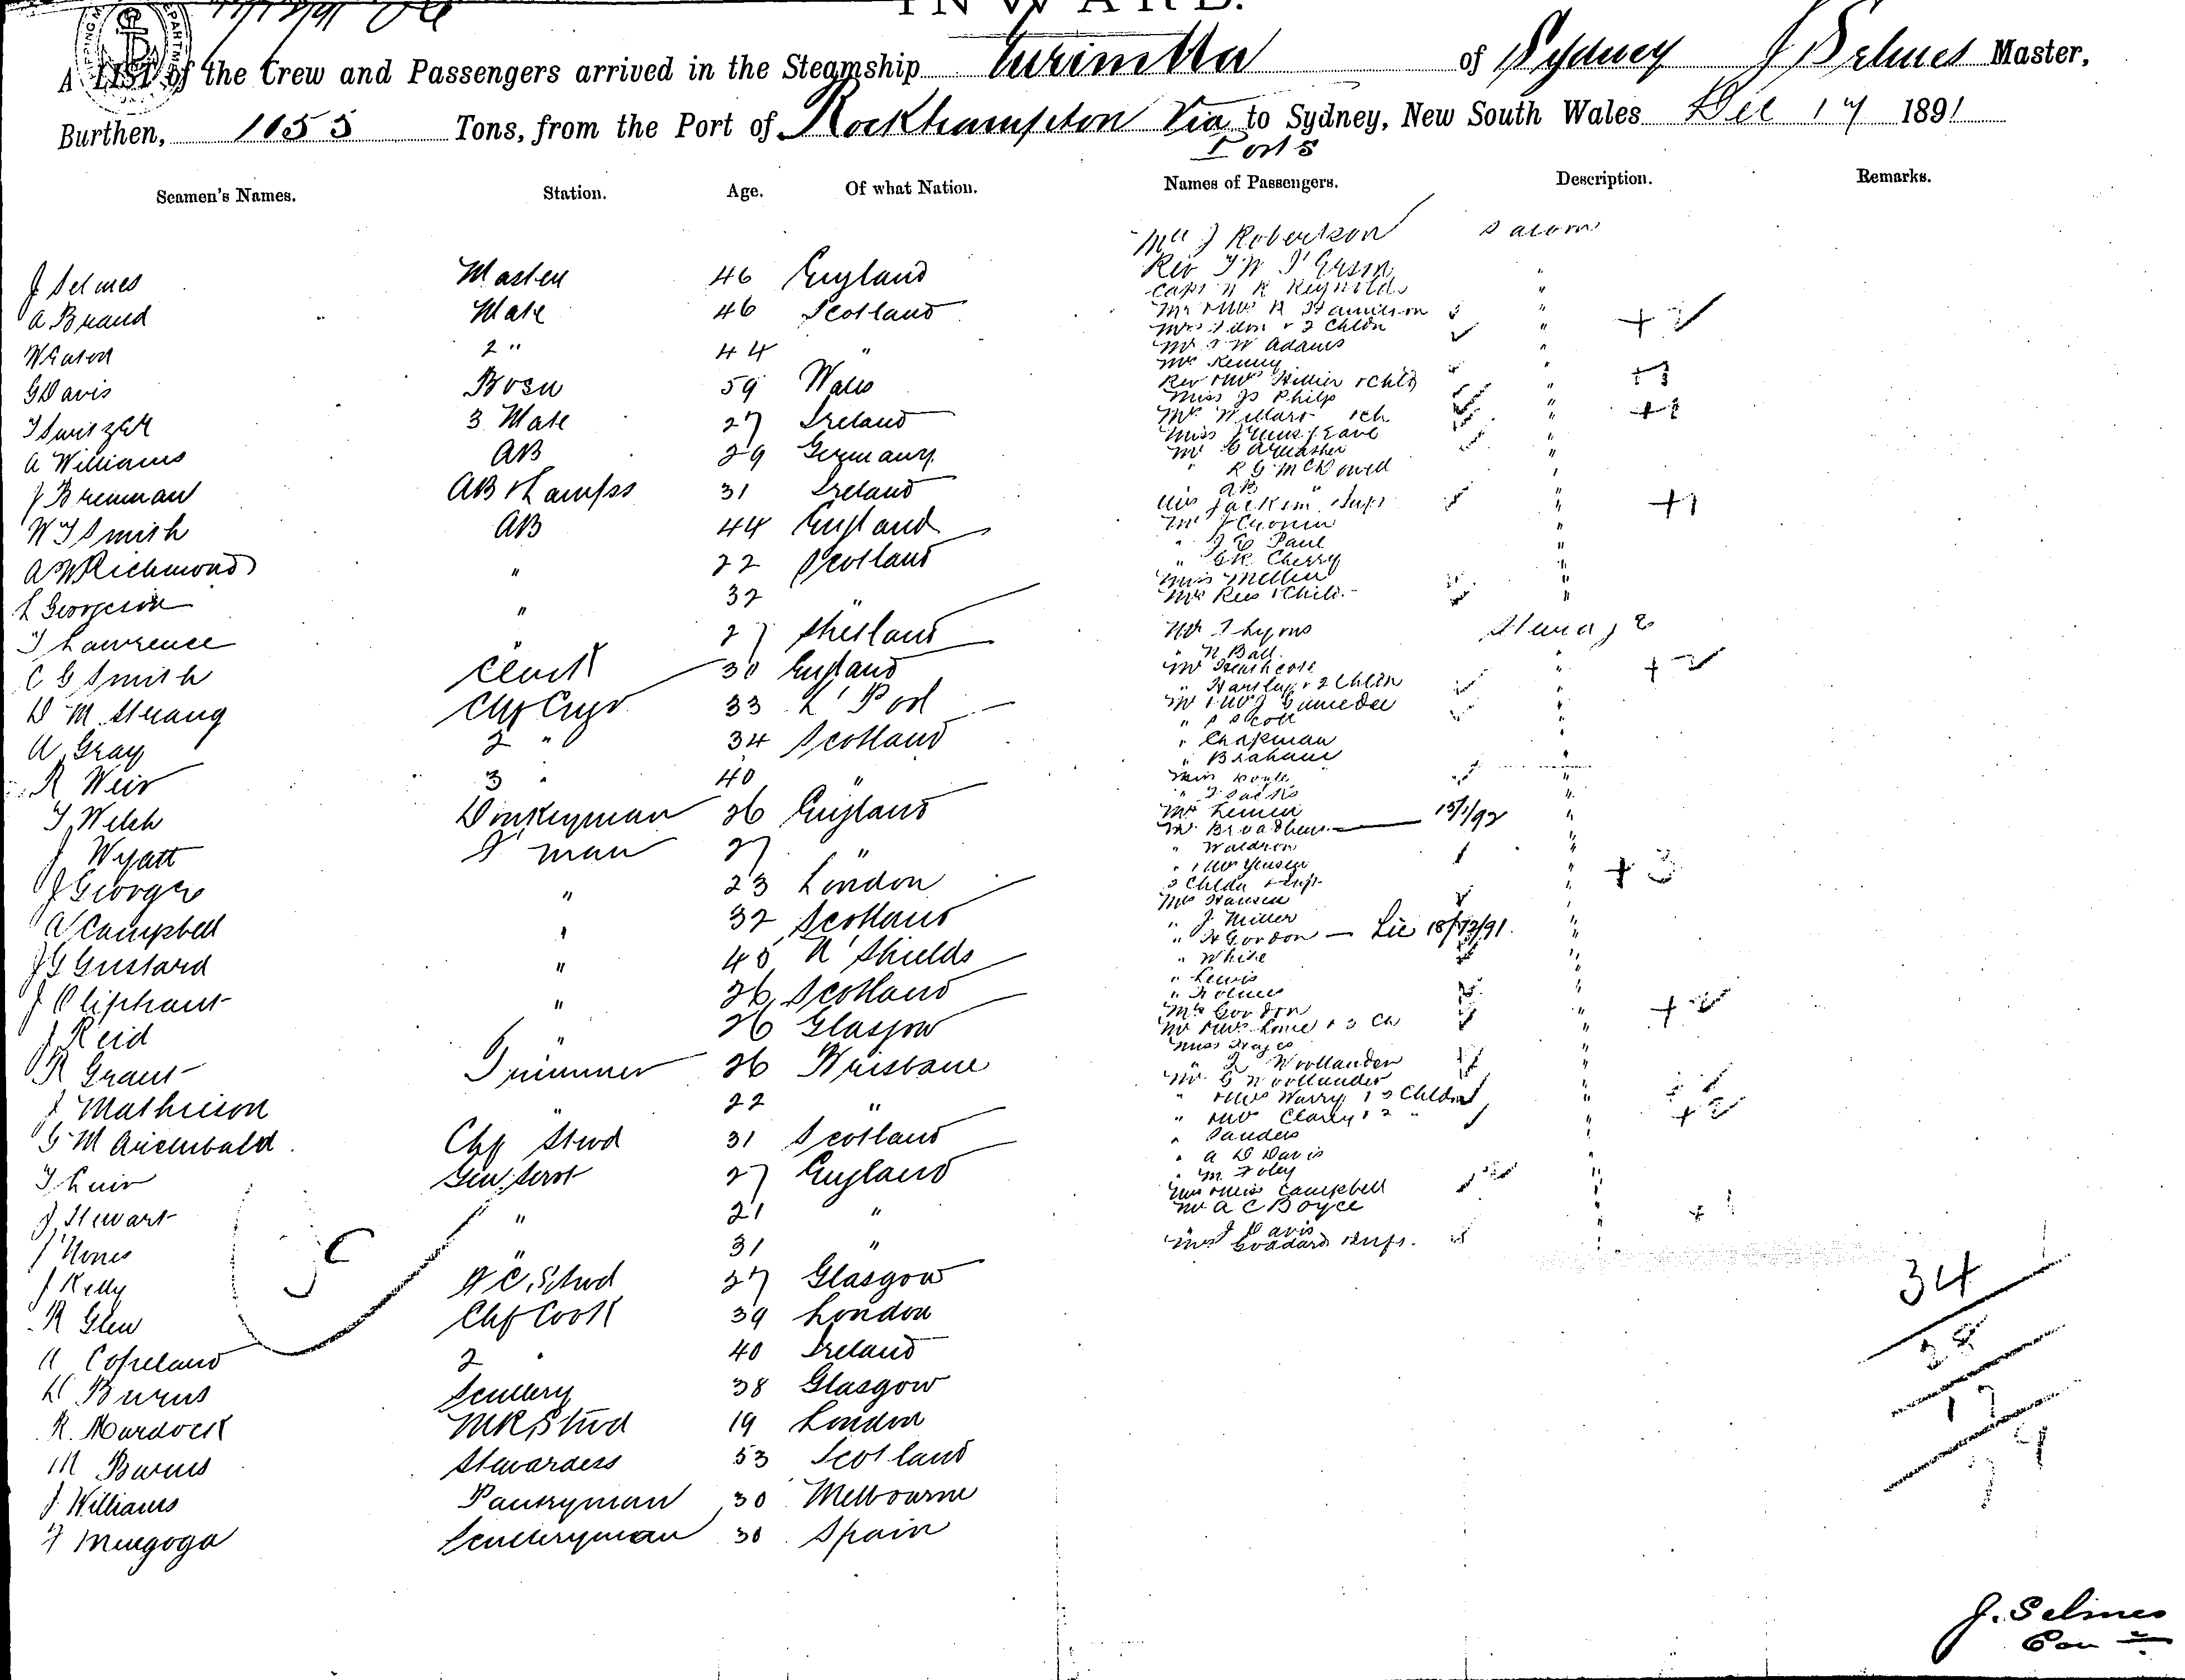 INWARD.
A LIST of the Crew and Passengers arrived in the Steamship Eurimbla of Sydney J Selmes Master,
Burthen, 1055 Tons, from the Port of Rockhampton Via to Sydney, New South Wales Dec 17 1891
Ports
Seamen's Names. Station. Age. Of what Nation. Names of Passengers. Description. Remarks.
J Selmes Master 46 England
A Brand Mate 46 Scotland
W Eaton 2 " 44 "
G Davis Bosn 59 Wales
T Switzer 3 Mate 27 Ireland
A Williams AB 29 Germany
J Brennan AB & Lamps 31 Ireland
W T Smith AB 44 England
A W Richmond " 22 Scotland
L Georgeson " 32 "
T Lawrence " 27 Shetland
C G Smith Clerk 30 England
D M Strang Chf Engr 33 L'Pool
A Gray 2 " 34 Scotland
R Weir 3 " 40 "
T Welch Donkeyman 26 England
J Wyatt F'man 27 "
J George " 23 London
A Campbell " 32 Scotland
J G Gustard " 45 N' Shields
J Oliphant " 26 Scotland
J Reid " 26 Glasgow
R Grant Trimmer 26 Brisbane
J Mathieson " 22 "
G M Archibald Chf Stwd 31 Scotland
T Luir Gen Servt 27 England
J Stewart " 21 "
J Jones " 31 "
J Kelly F C Stwd 27 Glasgow
R Glen Chf Cook 39 London
A Copeland 2 " 40 Ireland
D Burns Scullery 38 Glasgow
R. Murdock MR Stwd 19 London
M Burns Stewardess 53 Scotland
J Williams Pantryman 30 Melbourne
F Mengoga Sculleryman 30 Spain
J Robertson Saloon
Rev T W
Capt N R Reynolds "
Mr & Mrs R Hamilton "
+ 2 Chldn " +2
Mr S W Adams "
Mrs Kenny "
Rev & Mrs Hillier & Chld "
Miss Js Philp "
Mrs Willars & ch "
Miss Musgrave "
Mr C Armastier "
" R G McDowell "
" AB " "
Mrs Jackson & Inft " +1
Mr J Cronin "
" J E Paul "
" G R Cherry "
Miss Mellin "
Mrs Rees & Child "
Mr T Lyons Steerage
" N Ball "
Mr Heathcote " +2
" Hartley & 2 Chldn "
Mr & Mrs J "
" S Scott "
" Chapman "
" Braham "
Miss Doyle "
Mr Broadhurst 15/1/92 "
" Waldron "
" & Mrs Jensen "
3 Chldn & Inft " +3
Mrs Hansen "
" J Miller "
" H Gordon — Lic 18/12/91. "
" White "
" Lewis "
" Holmes "
Mrs Gordon " +2
Mr & Mrs Lowe & 3 Ch "
Miss Hayes "
" L Woollander "
Mr G Woollander "
" & Mrs Warry & 3 Chldn "
" & Mrs Clarey & 2 " " +2
" Sanders "
" A D Davis "
" M Foley "
Mrs & Miss Campbell "
Mr A C Boyce "
" J Davis "
Mrs Goddard & Inft. "
34
38
17
J. Selmes